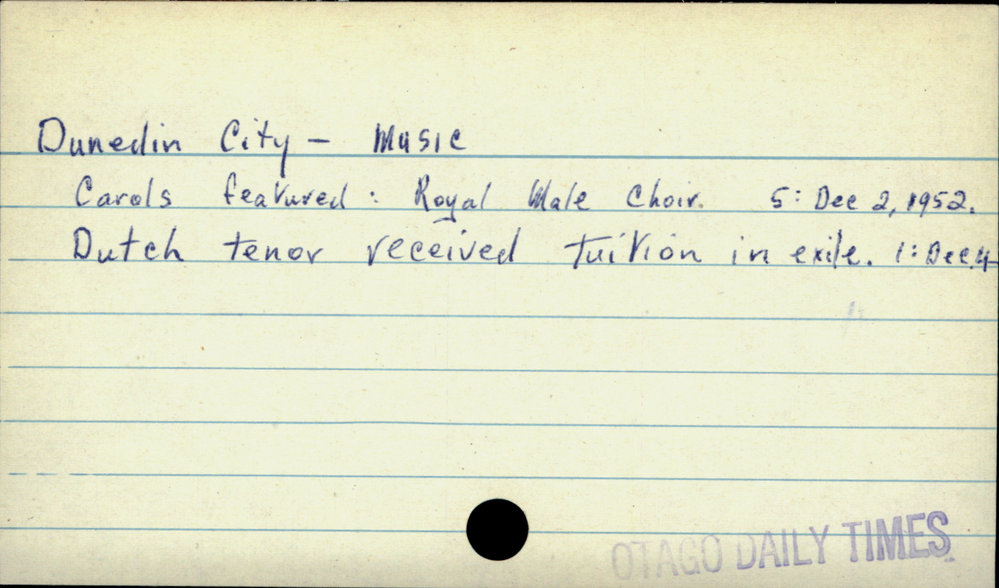 Dunedin City - Music
Carols featured: Royal Male Choir. 5: Dec 2, 1952.
Dutch tenor received tuition in exile. 1: Dec. 4
OTAGO DAILY TIMES